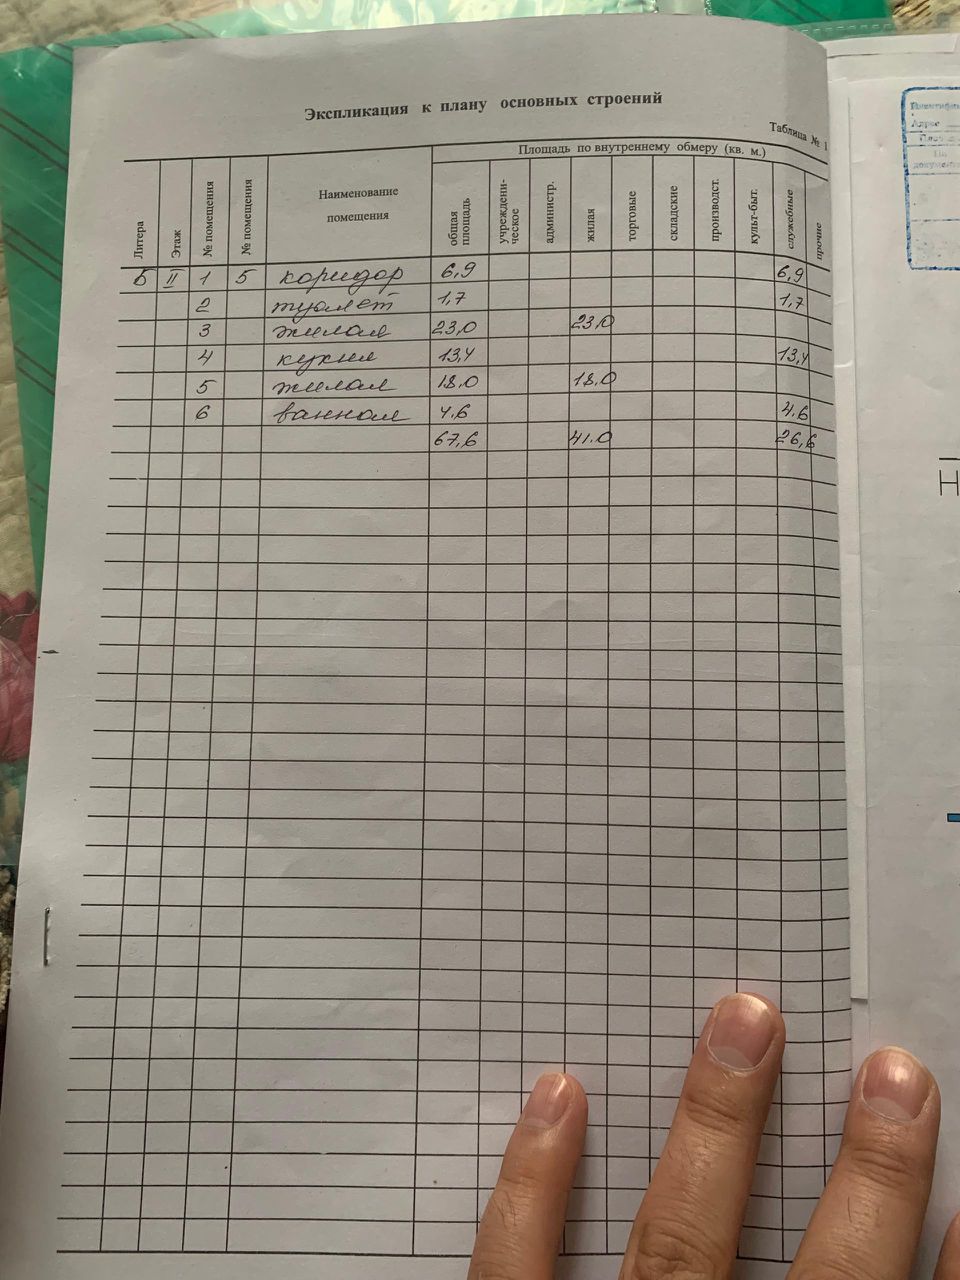 Экспликация к плану основных строений
Таблица № 1
Литера
Этаж
№ помещения
№ помещения
Наименование помещения
Площадь по внутреннему обмеру (кв. м.)
общая площадь
учреждени-
ческое
администр.
жилая
торговые
складские
производст.
культ-быт.
служебные
прочие
Б II 1 5 коридор 6,9 6,9
2 туалет 1,7 1,7
3 жилая 23,0 23,0
4 кухня 13,4 13,4
5 жилая 18.0 18.0
6 ванная 4.6 4.6
67,6 41.0 26,6
Адрес
По
Н